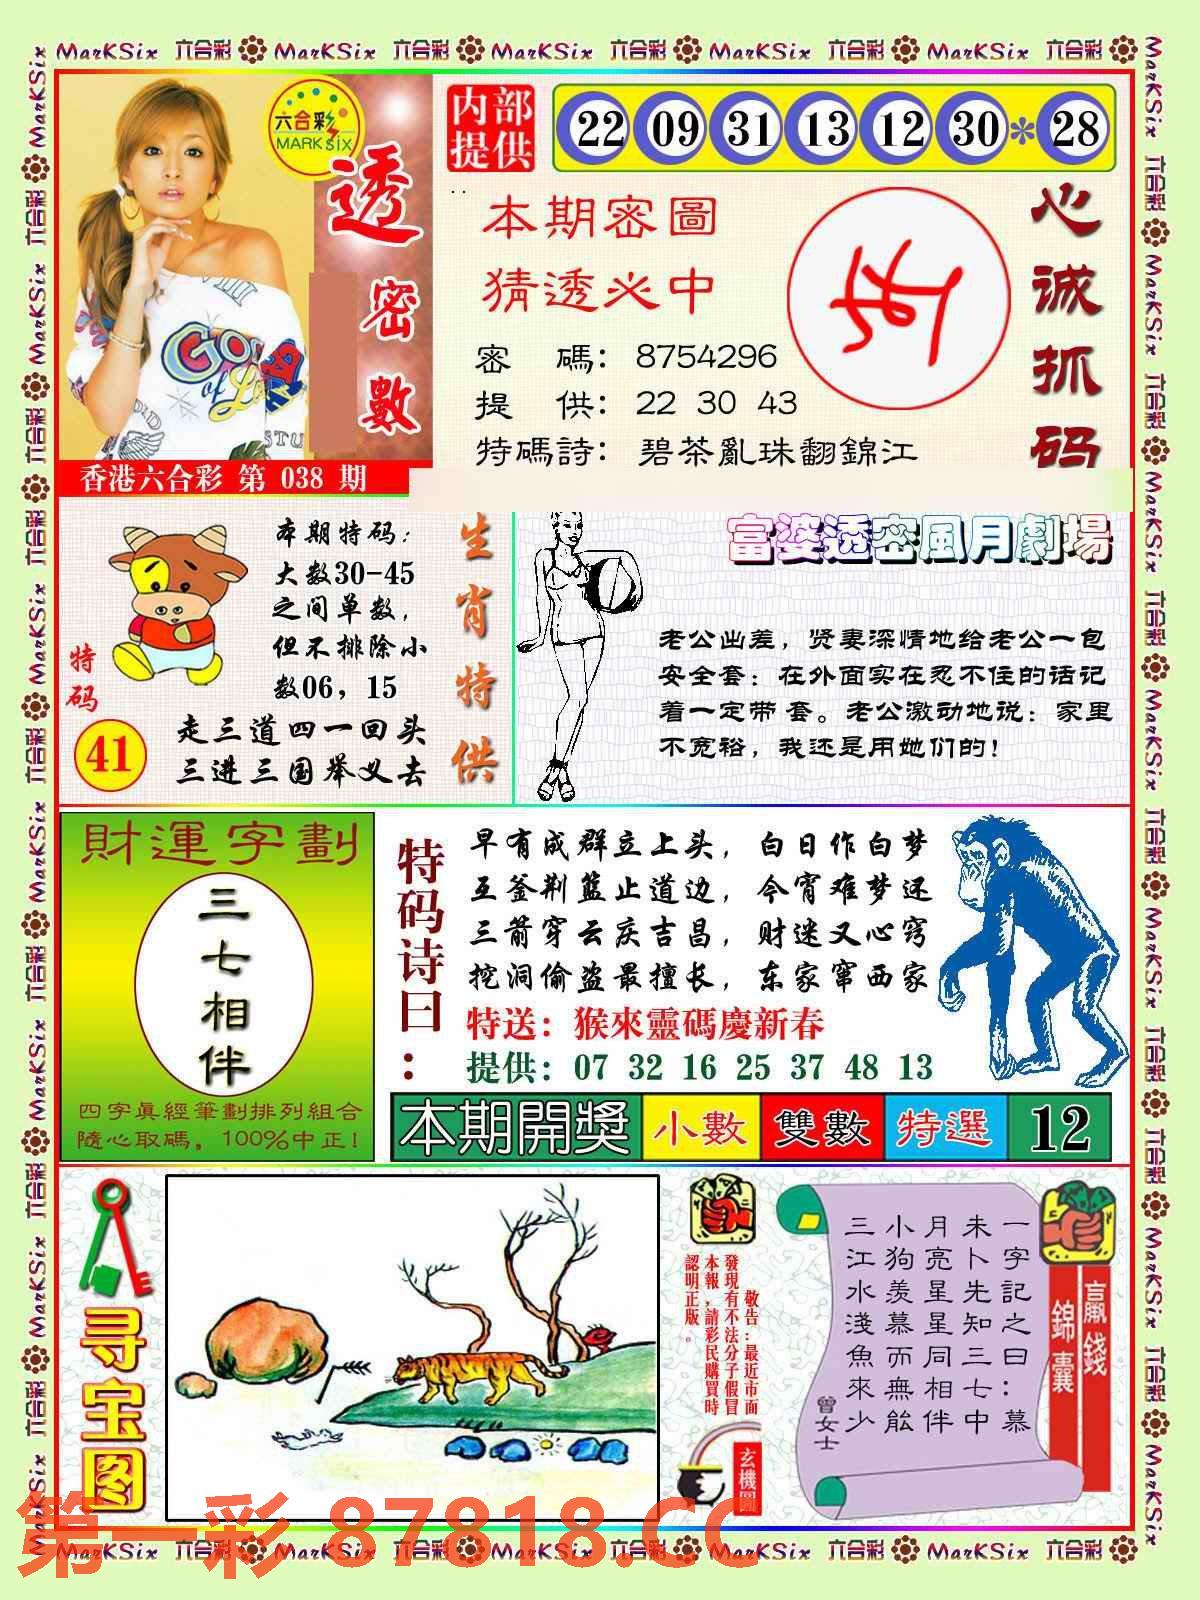 MarKSix 六合彩 MarKSix 六合彩 MarKSix 六合彩 MarKSix 六合彩 MarKSix 六合彩
六合彩
MARK SIX
透密數
香港六合彩 第 038 期
内部
提供
22 09 31 13 12 30 * 28
本期密圖
猜透必中
密 碼: 8754296
提 供: 22 30 43
特碼詩: 碧茶亂珠翻錦江
心诚抓码
本期特码:
大数30-45
之间单数,
但不排除小
数06, 15
特码
41
走三道四一回头
三进三国举义去
生肖特供
富婆透密風月劇場
老公出差, 贤妻深情地给老公一包
安全套: 在外面实在忍不住的话记
着一定带 套。老公激动地说: 家里
不宽裕, 我还是用她们的!
財運字劃
三七相伴
四字眞經筆劃排列組合
隨心取碼, 100%中正!
特码诗曰:
早有成群立上头, 白日作白梦
互釜荆篮止道边, 今宵难梦还
三箭穿云庆吉昌, 财迷又心窍
挖洞偷盗最擅长, 东家窜西家
特送: 猴來靈碼慶新春
提供: 07 32 16 25 37 48 13
本期開獎 小數 雙數 特選 12
寻宝图
敬告:最近市面
發現有不法分子假冒
本報,請彩民購買時
認明正版。
玄機圖
贏錢
錦囊
一字記之曰:慕
未卜先知三七中
月亮星星同相伴
小狗羨慕而無能
三江水淺魚來少
曾女士
第一彩 87818.CC
MarKSix 六合彩 MarKSix 六合彩 MarKSix 六合彩 MarKSix 六合彩 MarKSix 六合彩